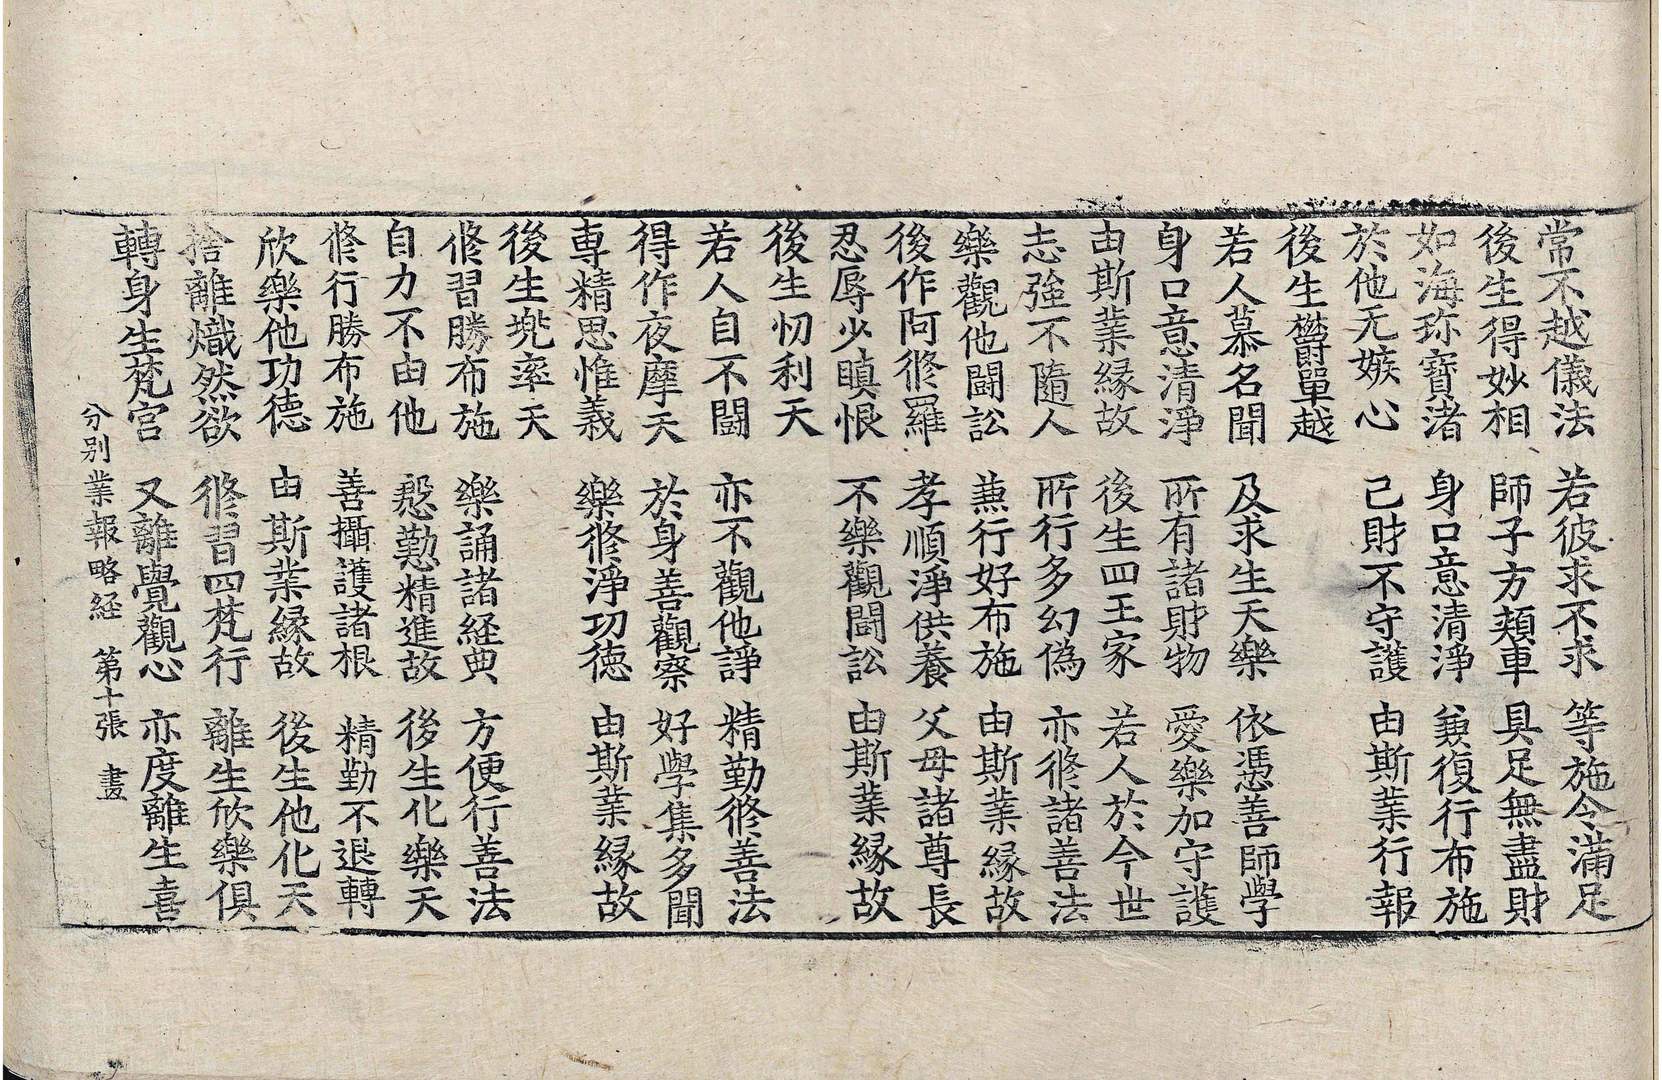 常不越儀法 若彼求不求 等施令滿足
後生得妙相 師子方頰車 具足無盡財
如海珎寶渚 身口意清淨 兼復行布施
於他无嫉心 己財不守護 由斯業行報
後生欝單越
若人慕名聞 及求生天樂 依憑善師學
身口意清淨 所有諸財物 愛樂加守護
由斯業緣故 後生四王家 若人於今世
志強不隨人 所行多幻偽 亦修諸善法
樂觀他鬪訟 兼行好布施 由斯業緣故
後作阿修羅 孝順淨供養 父母諸尊長
忍辱少瞋恨 不樂觀鬪訟 由斯業緣故
後生忉利天
若人自不鬪 亦不觀他諍 精勤修善法
得作夜摩天 於身善觀察 好學集多聞
專精思惟義 樂修淨功德 由斯業緣故
後生兠率天
修習勝布施 樂誦諸経典 方便行善法
自力不由他 慇懃精進故 後生化樂天
修行勝布施 善攝護諸根 精勤不退轉
欣樂他功德 由斯業緣故 後生他化天
捨離熾然欲 修習四梵行 離生欣樂俱
轉身生梵宮 又離覺觀心 亦度離生喜
分別業報略経 第十張 畫